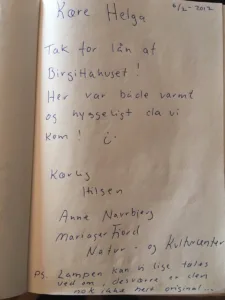 6/2-2012
Kære Helga
Tak for lån af
Birgittahuset!
Her var både varmt
og hyggeligt da vi
kom! :-
Kærlig
Hilsen
Anne
Mariager Fjord
Natur- og Kulturcenter
PS. Lampen kan vi lige tales
ved om, desværre er den
nok ikke helt original...